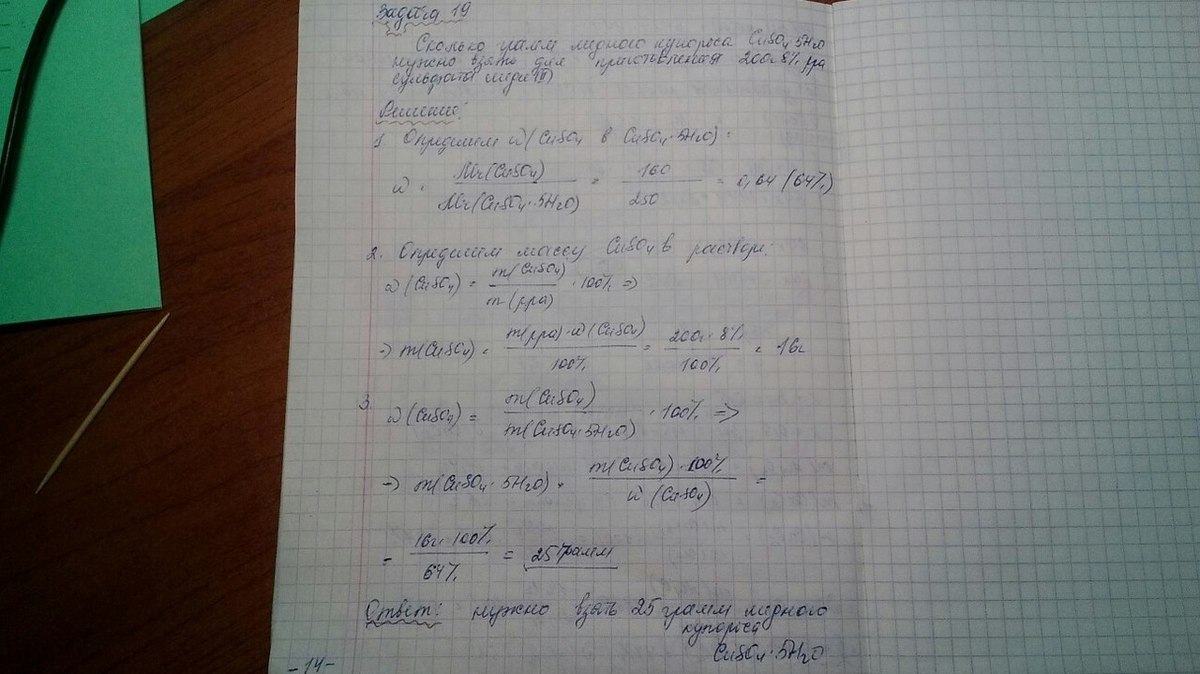 Задача 19
Сколько грамм медного купороса CuSO₄·5H₂O
нужно взять для приготовления 200г 8% рра
сульфата меди(II)
Решение:
1 Определим ω(CuSO₄ в CuSO₄·5H₂O):
ω = Mr(CuSO₄) / Mr(CuSO₄·5H₂O) = 160 / 250 = 0,64 (64%)
2. Определим массу CuSO₄ в растворе:
ω(CuSO₄) = m(CuSO₄) / m(рра) · 100% =>
=> m(CuSO₄) = m(рра)·ω(CuSO₄) / 100% = 200г·8% / 100% = 16г
3. ω(CuSO₄) = m(CuSO₄) / m(CuSO₄·5H₂O) · 100% =>
=> m(CuSO₄·5H₂O) = m(CuSO₄)·100% / ω(CuSO₄) =
= 16г·100% / 64% = 25 грамм
Ответ: нужно взять 25 грамм медного
купороса
CuSO₄·5H₂O
-14-